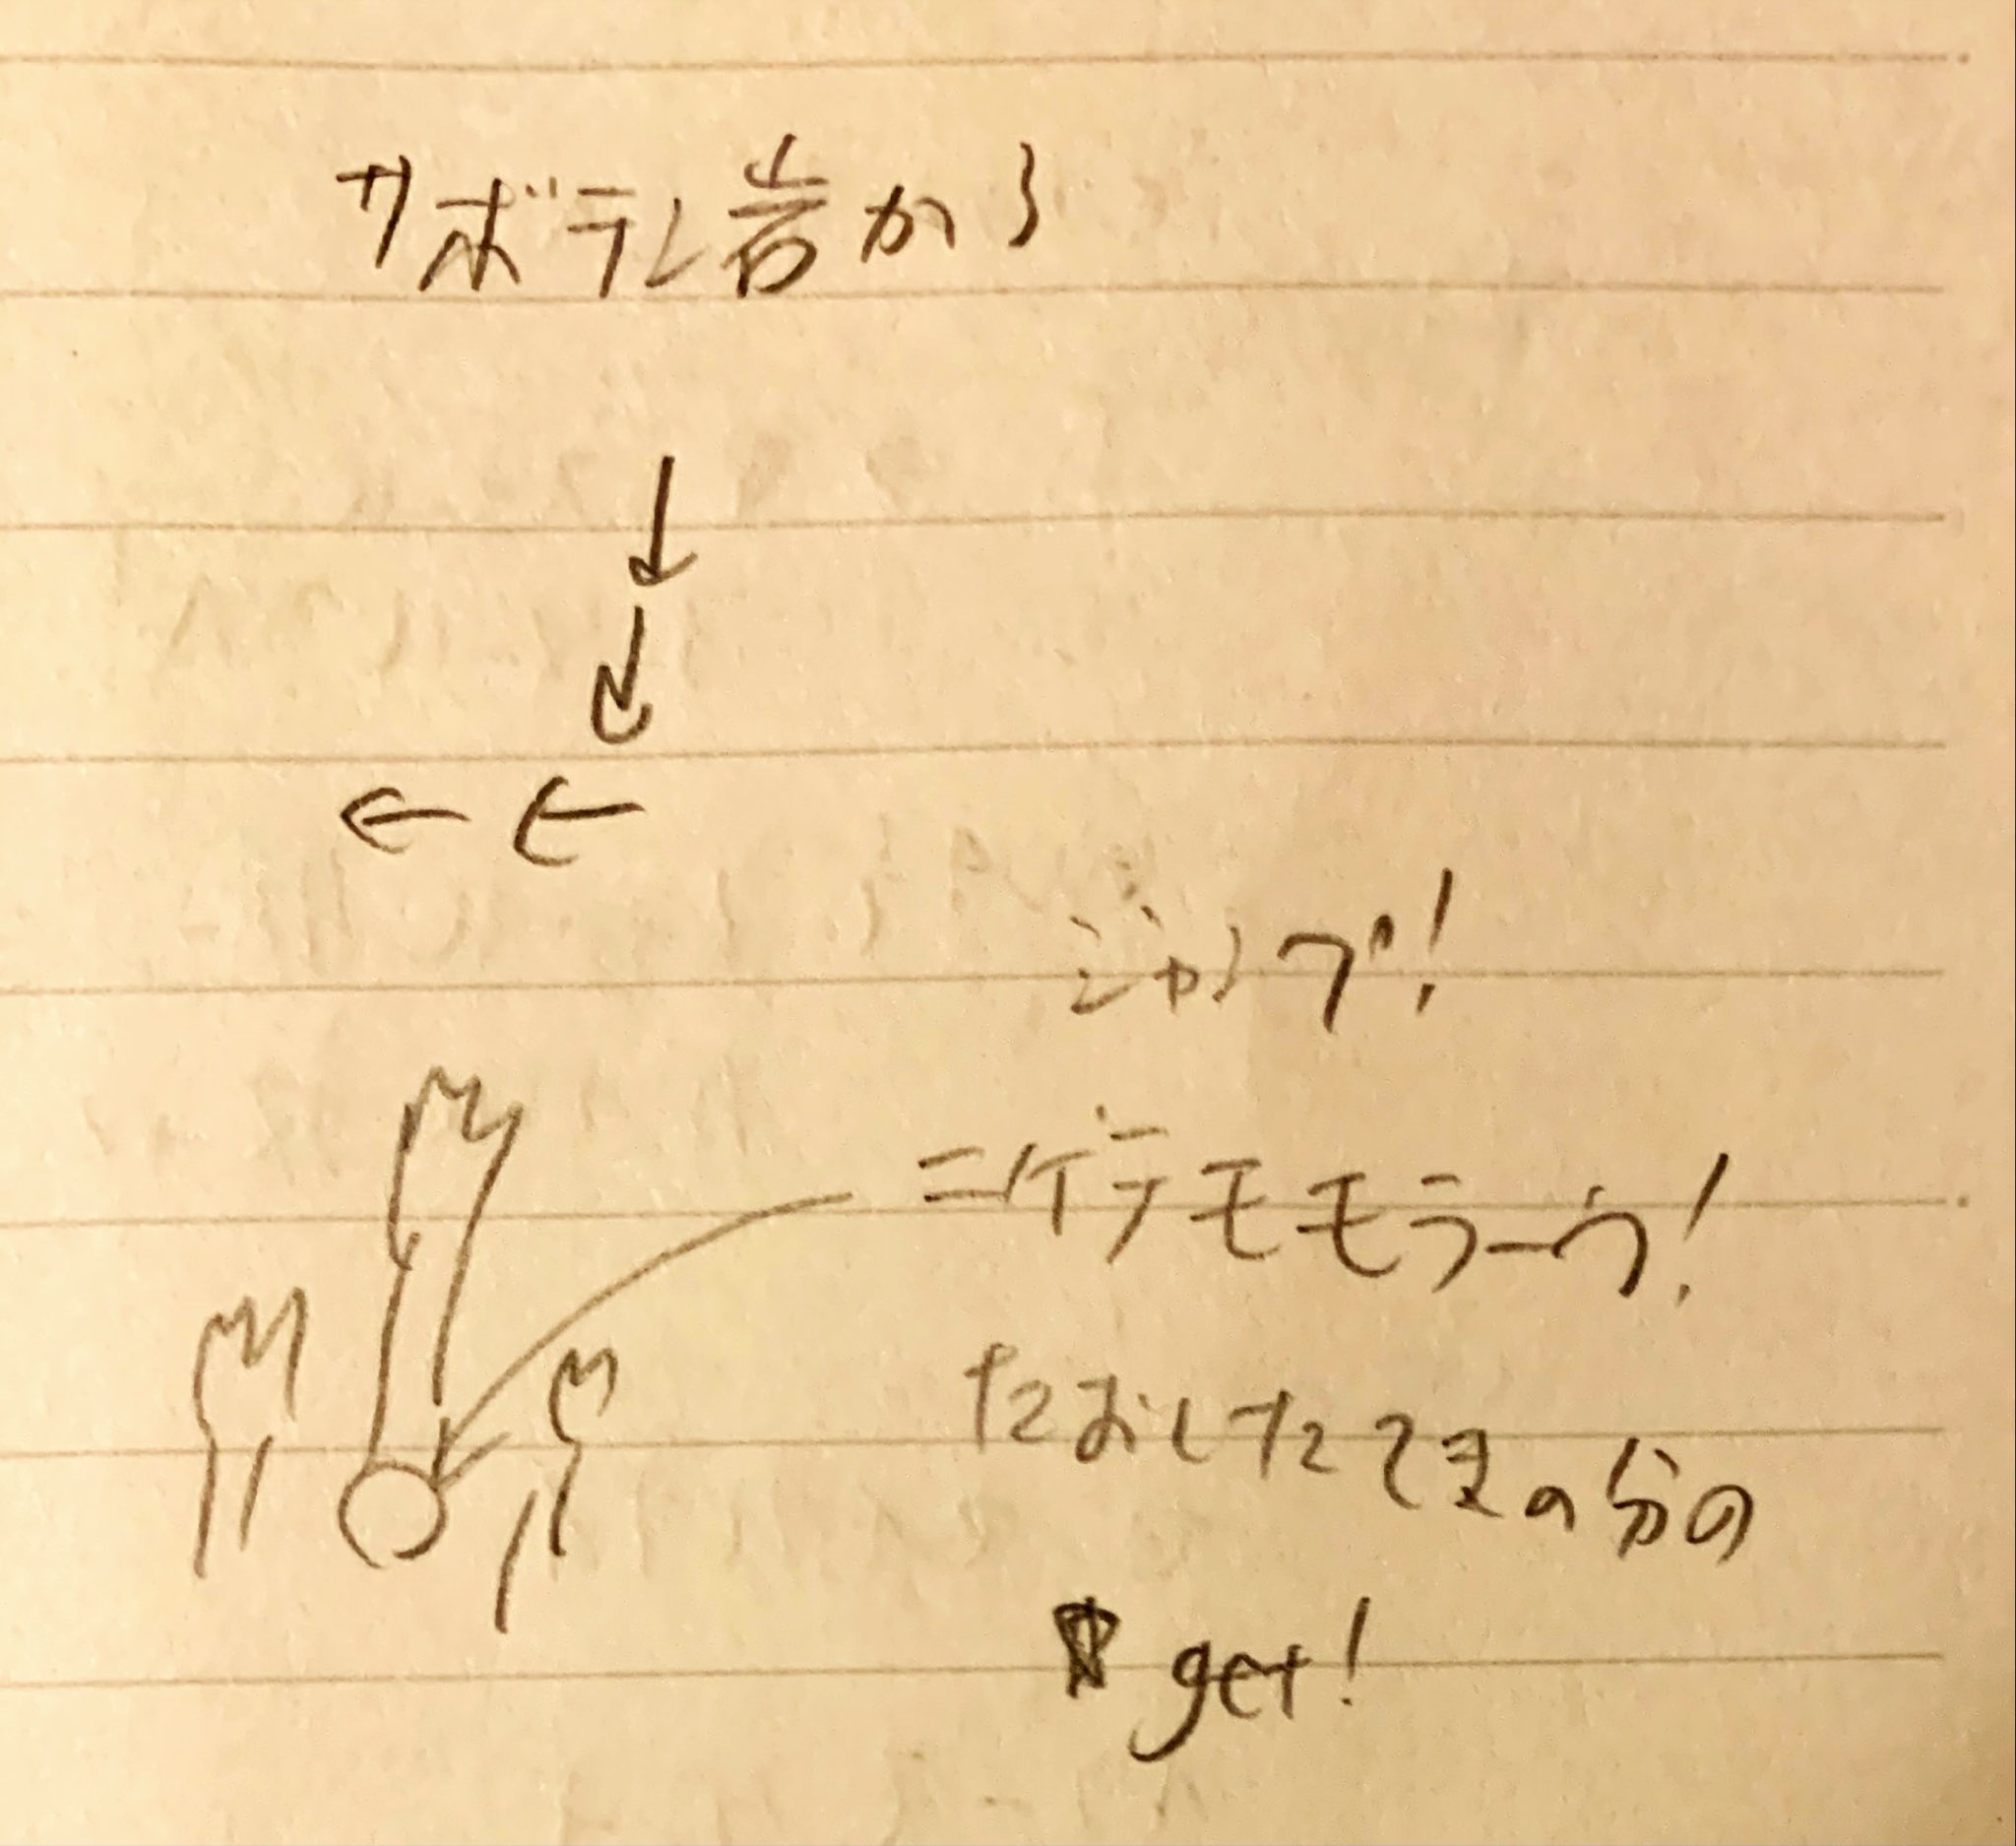 サボテン岩から
↓
↓
← ←
ジャンプ!
ニゲテモモラーウ!
たおしたてきの分の
$ get!